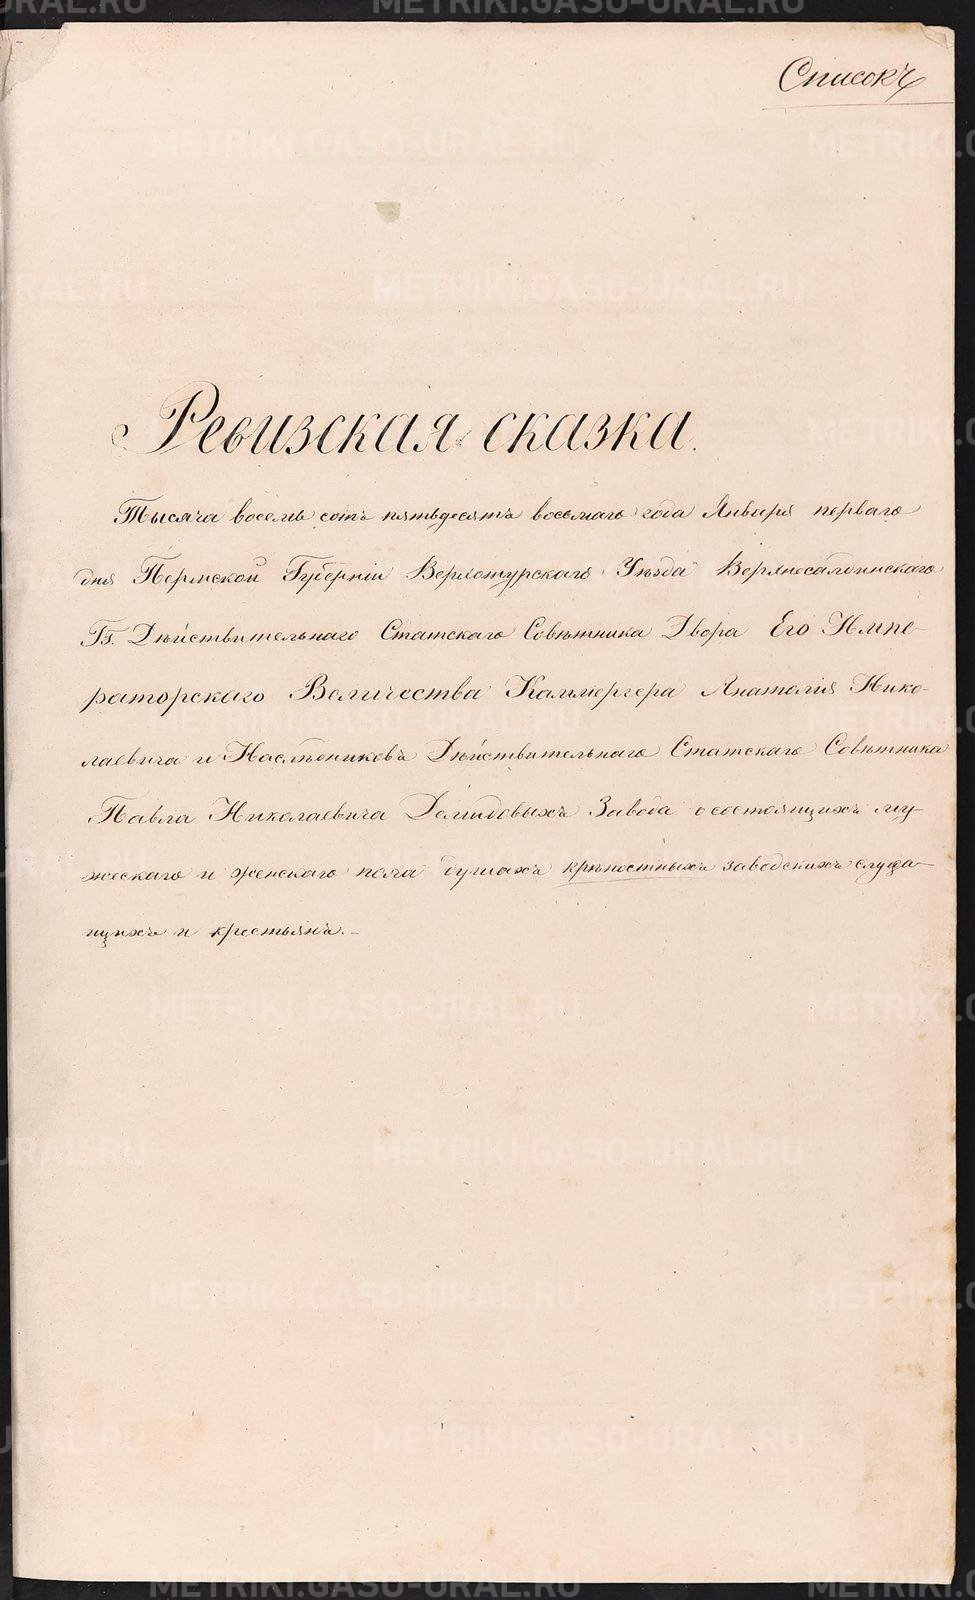 Списокъ
Ревизская сказка.
Тысяча восемь сотъ пятьдесятъ восьмаго года Января перваго
дня Пермской Губерніи Верхотурскаго Уѣзда Верхнесалдинскаго
Гг. Дѣйствительнаго Статскаго Совѣтника Двора Его Импе-
раторскаго Величества Каммергера Анатолія Нико-
лаевича и Наслѣдниковъ Дѣйствительнаго Статскаго Совѣтника
Павла Николаевича Демидовыхъ Завода о состоящихъ му-
жескаго и женскаго пола душахъ крѣпостныхъ заводскихъ служа-
щихъ и крестьянъ.-
METRIKI.GASO-URAL.RU